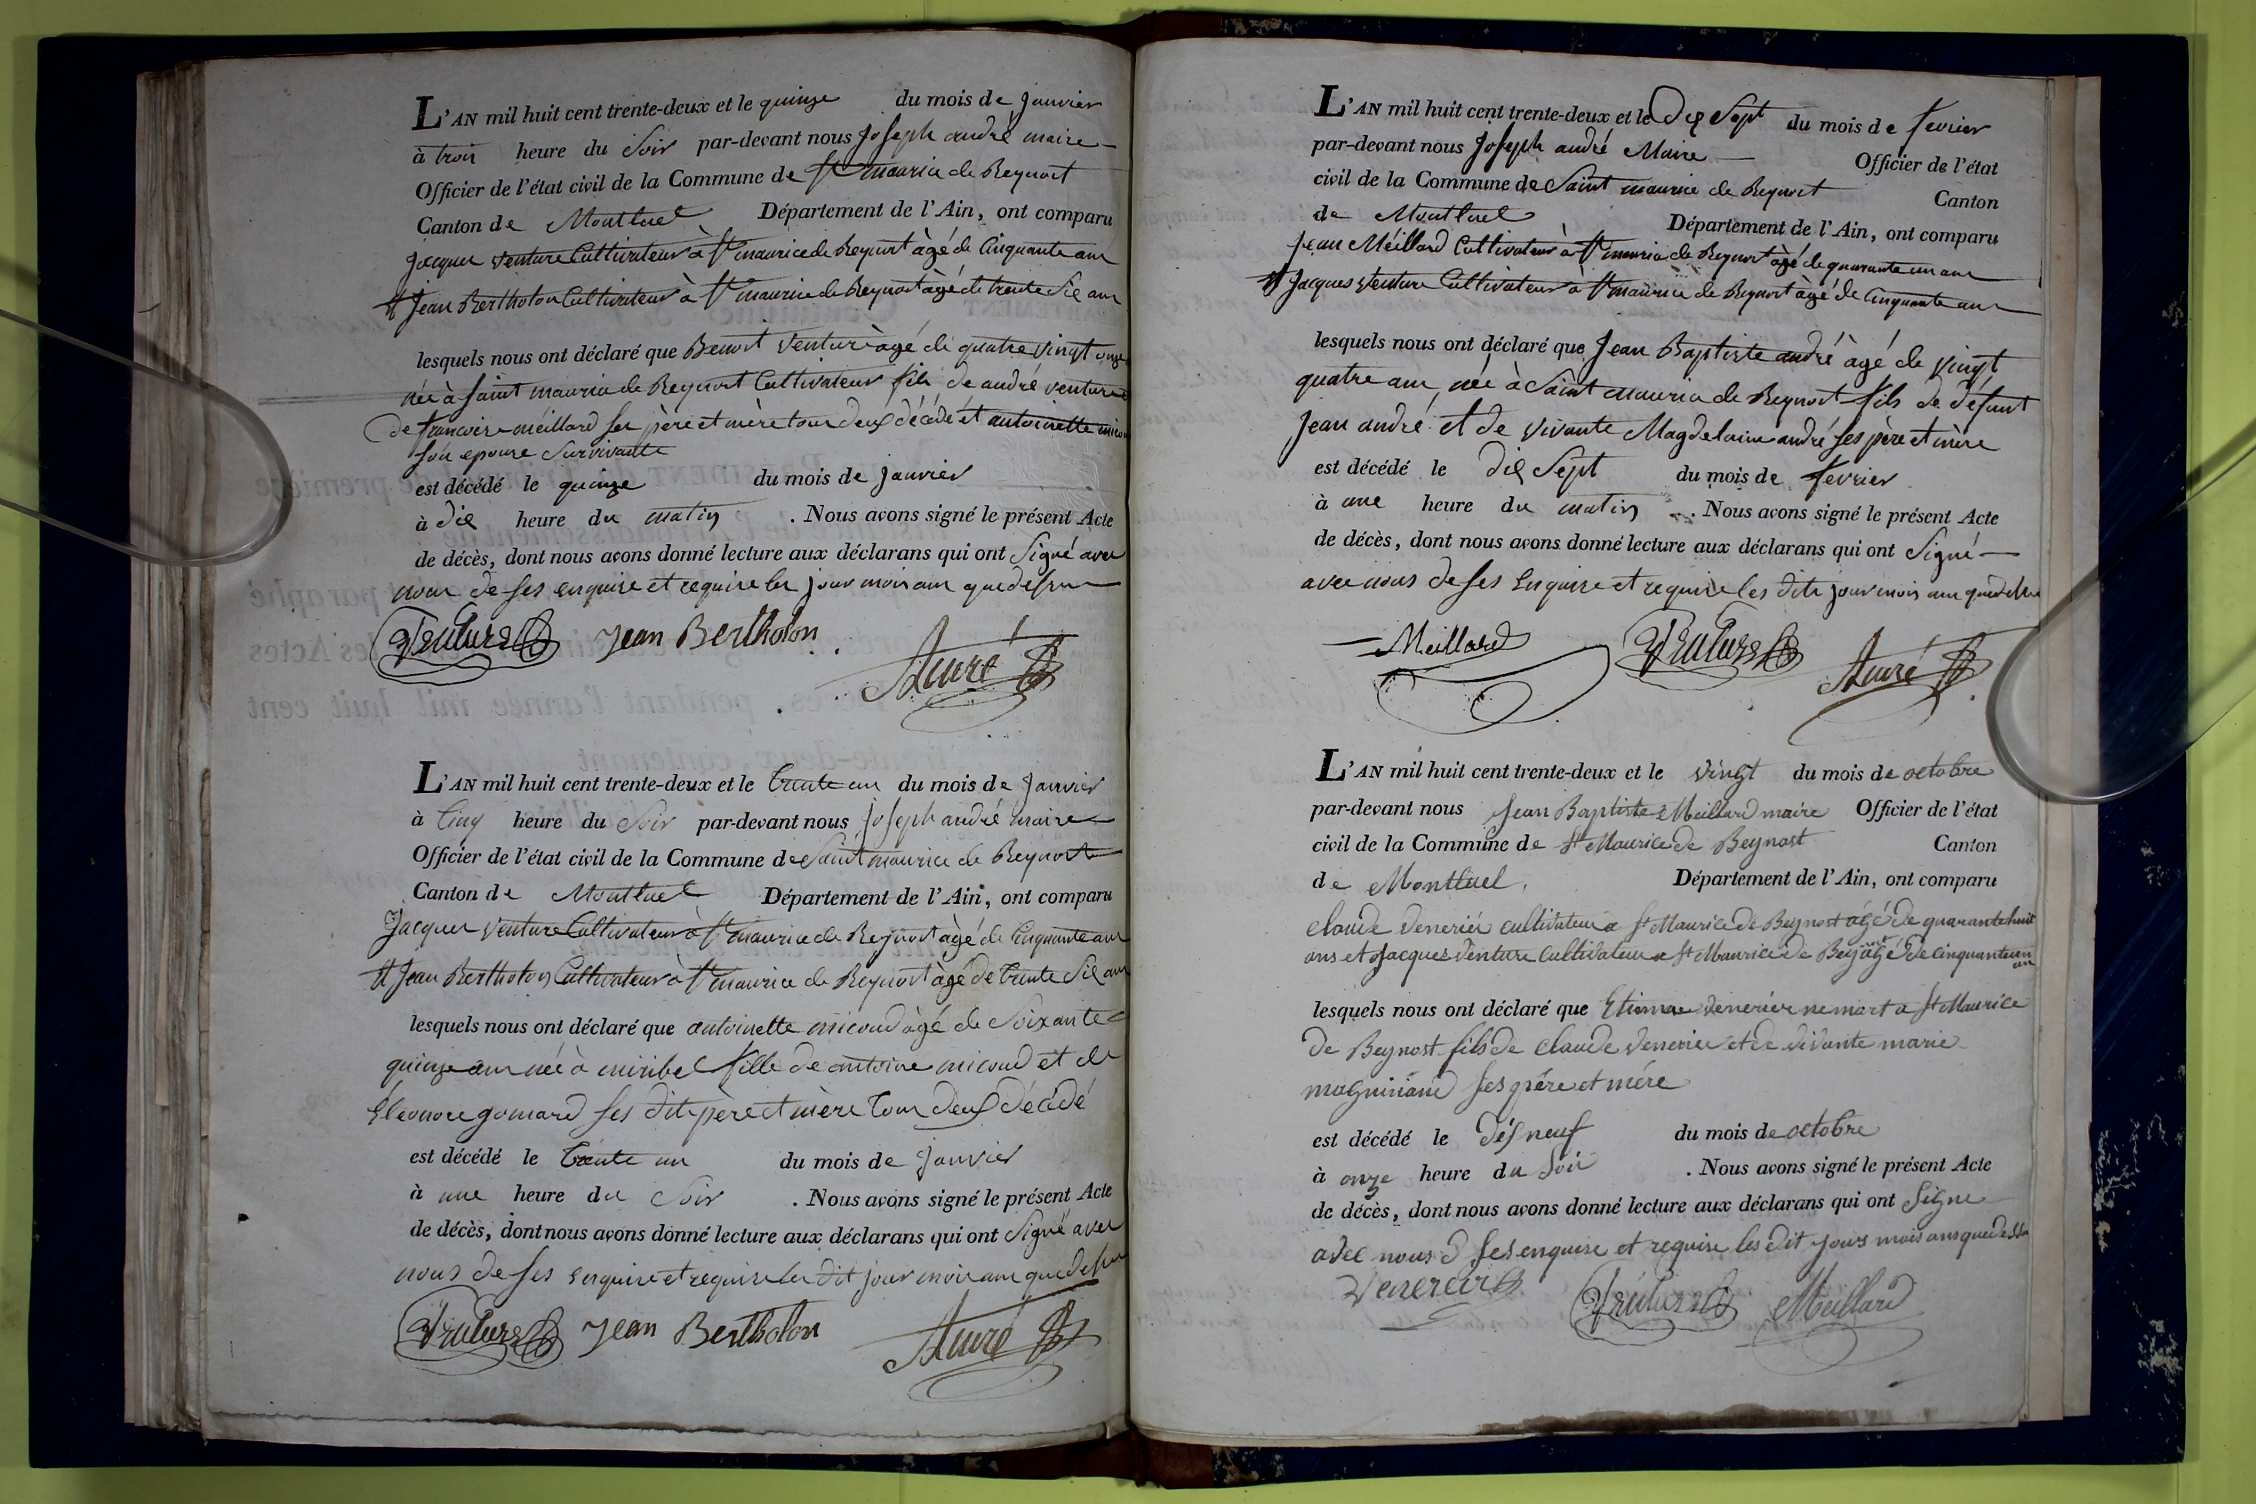 L'AN mil huit cent trente-deux et le quinze du mois de janvier
à trois heure du Soir par-devant nous Joseph andré maire
Officier de l'état civil de la Commune de St maurice de Beynost
Canton de Montluel Département de l'Ain, ont comparu
Jacques venture Cultivateur à St maurice de Beynost âgé de Cinquante ans
et Jean Bertholon Cultivateur à St maurice de Beynost âgé de trente Six ans
lesquels nous ont déclaré que Benoit Venture âgé de quatre vingt onze
née à Saint maurice de Beynost Cultivateur fils de andré venture
de francoise méillard ses père et mère tous deux décédé et antoinette micou
son epouse Survivante
est décédé le quinze du mois de janvier
à dix heure du matin . Nous avons signé le présent Acte
de décès, dont nous avons donné lecture aux déclarans qui ont Signé avec
nous de ses enquise et requise les jour mois ans que dessus
Venture Jean Bertholon
André
L'AN mil huit cent trente-deux et le trente un du mois de janvier
à Cinq heure du Soir par-devant nous Joseph andré maire
Officier de l'état civil de la Commune de Saint maurice de Beynost
Canton de Montluel Département de l'Ain, ont comparu
Jacques venture Cultivateur à St maurice de Beynost âgé de Cinquante ans
et Jean Bertholon Cultivateur à St maurice de Beynost âgé de trente Six ans
lesquels nous ont déclaré que antoinette micoud âgé de Soixante
quinze ans née à miribel fille de antoine micoud et de
Eleonore gomard ses dits père et mère tous deux décédé
est décédé le trente un du mois de janvier
à une heure du Soir . Nous avons signé le présent Acte
de décès, dont nous avons donné lecture aux déclarans qui ont Signé avec
nous de ses enquise et requise les dit jour mois ans que dessus
Venture Jean Bertholon André
L'AN mil huit cent trente-deux et le Dix Sept du mois de fevrier
par-devant nous Joseph andré Maire Officier de l'état
civil de la Commune de Saint maurice de Beynost Canton
de Montluel Département de l'Ain, ont comparu
Jean Méillard Cultivateur à St maurice de Beynost âgé de quarante un ans
et Jacques Venture Cultivateur à St maurice de Beynost âgé de Cinquante ans
lesquels nous ont déclaré que Jean Baptiste andré âgé de vingt
quatre ans, née à Saint maurice de Beynost fils de défunt
Jean andré et de vivante Magdelaine andré ses père et mère
est décédé le dix Sept du mois de fevrier
à une heure du matin . Nous avons signé le présent Acte
de décès, dont nous avons donné lecture aux déclarans qui ont Signé
avec nous de ses Enquise et requise les dits jour mois ans que dessus
Meillard Venture André
L'AN mil huit cent trente-deux et le vingt du mois de octobre
par-devant nous Jean Baptiste Meillard maire Officier de l'état
civil de la Commune de St Maurice de Beynost Canton
de Montluel, Département de l'Ain, ont comparu
claude venerier cultivateur a St Maurice de Beynost âgé de quarante huit
ans et Jacques Venture Cultivateur a St Maurice de Beynost âgé de cinquante un
an
lesquels nous ont déclaré que Etienne venerier ne mort a St Maurice
de Beynost fils de claude venerier et de vivante marie
magninand ses père et mére
est décédé le dés neuf du mois de octobre
à onze heure du Soir . Nous avons signé le présent Acte
de décès, dont nous avons donné lecture aux déclarans qui ont Signe
avec nous d ses enquise et requise les dit jours mois ans que dessu
Venereir Venture Meillard